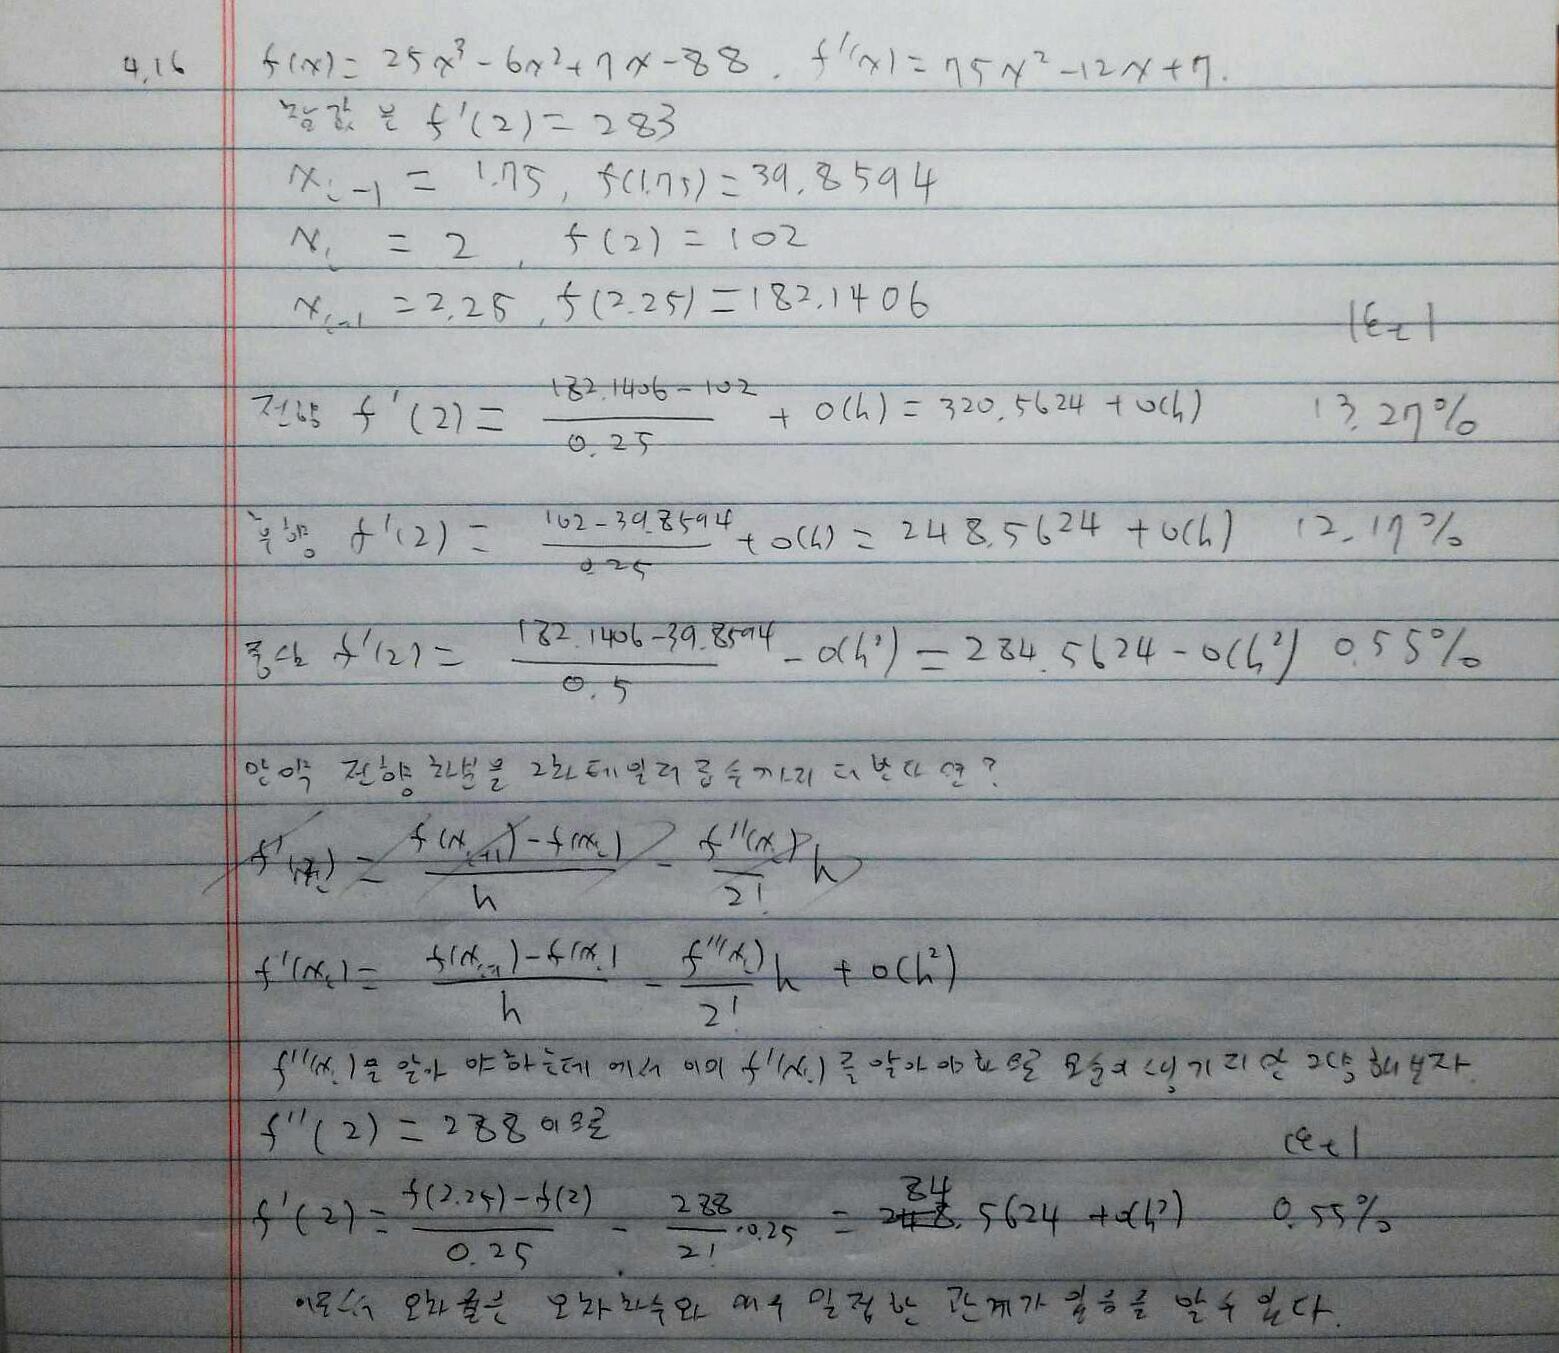 4.16 f(x) = 25x³ - 6x² + 7x - 88. f'(x) = 75x² - 12x + 7.
참값은 f'(2) = 283
xᵢ₋₁ = 1.75, f(1.75) = 39.8594
xᵢ = 2, f(2) = 102
xᵢ₋₁ = 2.25, f(2.25) = 182.1406
|εₜ|
전향 f'(2) = (182.1406 - 102)/0.25 + O(h) = 320.5624 + O(h) 13.27%
후향 f'(2) = (102 - 39.8594)/0.25 + O(h) = 248.5624 + O(h) 12.17%
중앙 f'(2) = (182.1406 - 39.8594)/0.5 - O(h²) = 284.5624 - O(h²) 0.55%
만약 전향 차분을 2차 테일러 급수까지 더 본다면?
f'(xᵢ) = (f(xᵢ₊₁) - f(xᵢ))/h - f''(xᵢ)/2! h
f'(xᵢ) = (f(xᵢ₊₁) - f(xᵢ))/h - f''(xᵢ)/2! h + O(h²)
f''(xᵢ)을 알아야 하는데 에서 이미 f'(xᵢ)를 알아야 하므로 모순이 생기지만 그냥 해보자.
f''(2) = 288 이므로
|εₜ|
f'(2) = (f(2.25) - f(2))/0.25 - 288/2! · 0.25 = 284.5624 + O(h²) 0.55%
이로서 오차율은 오차차수와 매우 밀접한 관계가 있음을 알 수 있다.